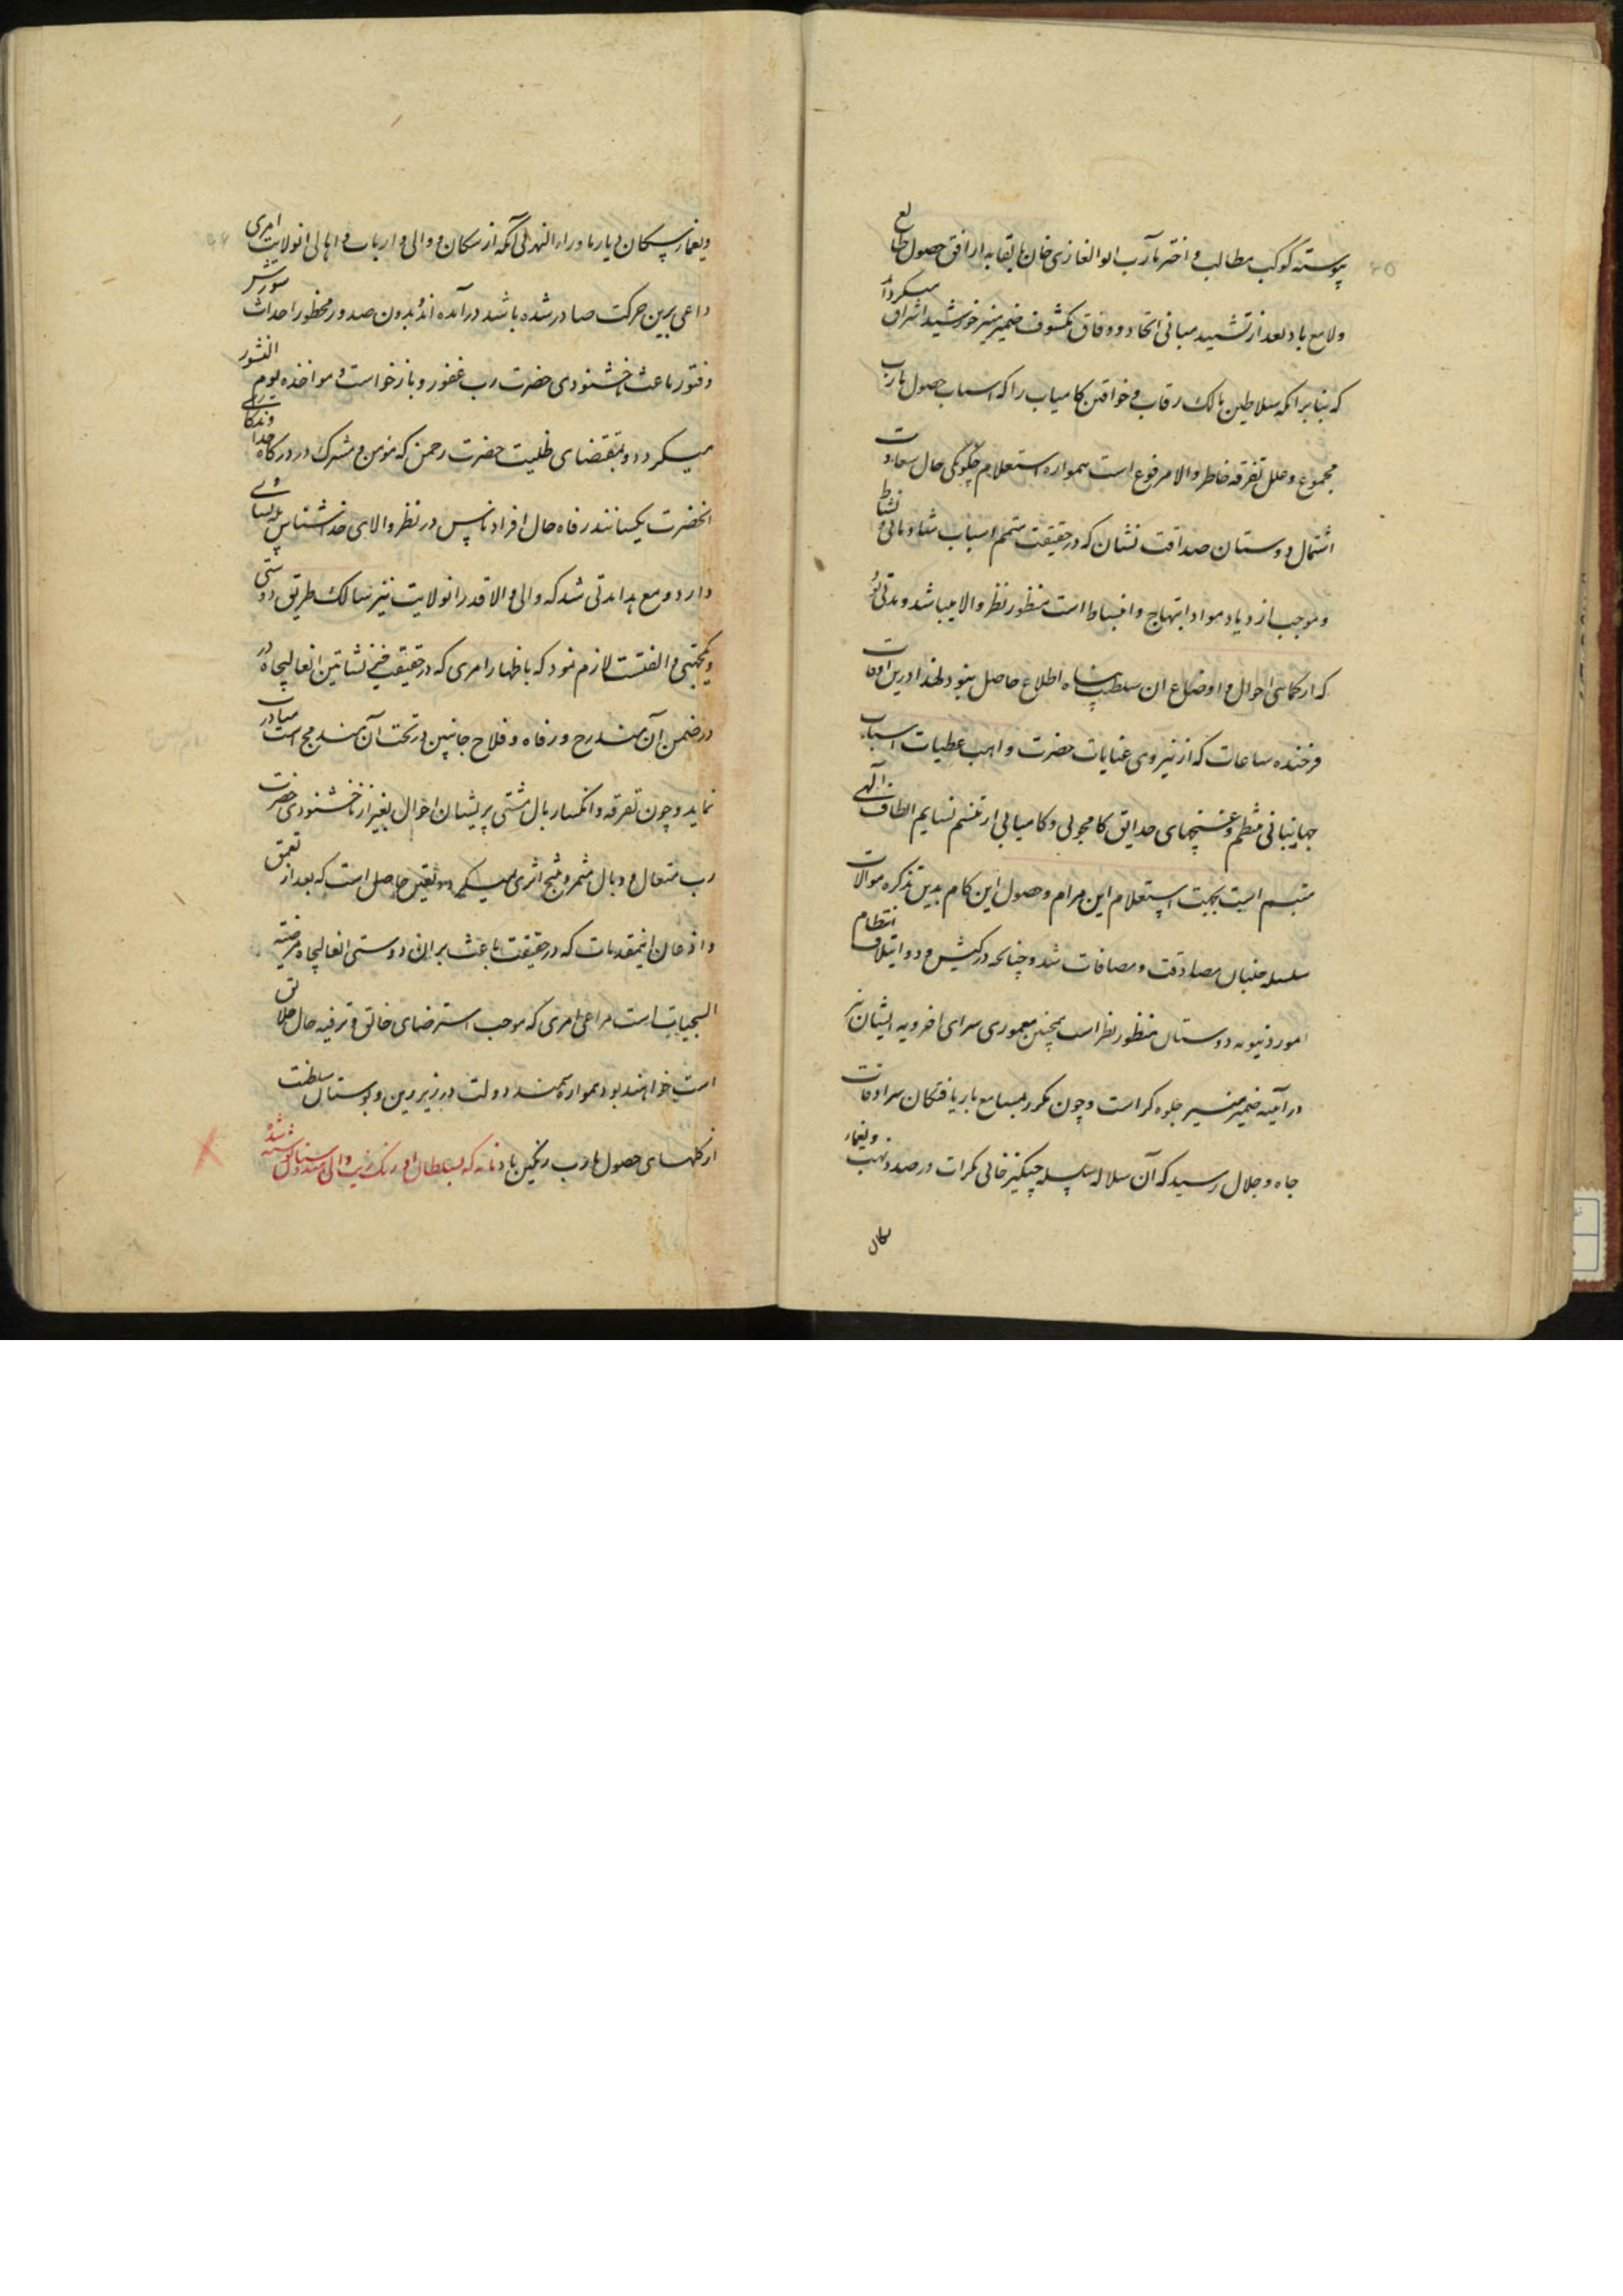 پیوسته کوکب مطالب و اختر مآرب ابو الغازی خان بابقابه از افق حصول طالع
ولامع باد بعد از تشیید مبانی اتحاد و وفاق مکشوف ضمیر منیر خورشید اشراق میکرداند
که بنا برانکه سلاطین مالک رقاب و خواقین کامیاب را که اسباب حصول مارب
مجموع و علل تفرقه خاطر والا مرفوع است همواره استعلام چکونکی حال سعادت
اشتمال دوستان صداقت نشان که در حقیقت متمم اسباب نشاط
و موجب ازدیاد مواد ابتهاج و انبساط است منظور نظر والا میباشد و مدتی بود
که از کماهی احوال و اوضاع ان سلطنت پناه اطلاع حاصل نبود لهذا درین اوقات
فرخنده ساعات که از نیروی عنایات حضرت واهب عطیات اسباب
جهانبانی منتظم و غنچهای حدایق کامجویی و کامیابی از تنسم نسایم الطاف الهی
متبسم است بجهت استعلام این مرام و حصول این کام بدین تذکره موالات
سلسله جنبان مصادقت و مصافات شد و چنانچه در کیش وداد ایتلاف انتظام
امور دنیویه دوستان منظور نظر است همچنین معموری سرای اخرویه ایشان نیز
در آینه ضمیر منیر جلوه کر است و چون مکرر بمسامع باریافتکان سرادقات
جاه و جلال رسید که آن سلاله سلسله چنکیز خانی بکرات در صدد نهب و یغمای
سکان
و یغمای سکان دیار ماوراء النهر بی آنکه از سکان و والی و ارباب و اهالی انولایت امری
داعی برین حرکت صادر شده باشد در آمده اند و بدون صدور محظور احداث شورش
و فتور باعث ناخشنودی حضرت رب غفور و بازخواست و مواخذه یوم النشور
میکردد و بمقتضای ظلیت حضرت رحمن که مؤمن و مشرک در درکاه خدا وندی
انحضرت یکسانند رفاه حال افراد ناس در نظر والای خداشناس
دارد و مع هذا مدتی شد که والی والا قدر انولایت نیز سالک طریق دوستی
و یکجهتی و الفتست لازم نمود که باظهار امری که در حقیقت خیر نشاتین انعالیجاه در
در ضمن آن مندرج و رفاه و فلاح جانبین در تحت آن مندمج است مبادرت
نماید و چون تفرقه و انکسار بال مشتی پریشان احوال بغیر از ناخشنودی حضرت
رب متعال و وبال مثمر و منتج اثری نمیکردد یقین حاصل است که بعد از تعمق
و اذعان اینمقدمات که در حقیقت باعث بر ان دوستی انعالیجاه مرضیه
السجیات است مراعی امری که موجب استرضای خالق و ترفیه حال خلایق
است خواهند بود همواره سمند دولت در زیر زین و بوستان سلطنت
از کلهای حصول مارب رنکین باد نامه که بسلطان اورنک زیب والی هندوستان نوشته شد